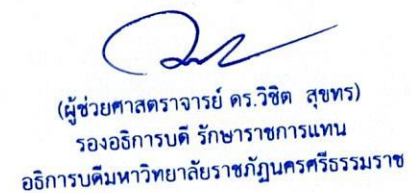 (ผู้ช่วยศาสตราจารย์ ดร.วิชิต สุขทร)
รองอธิการบดี รักษาราชการแทน
อธิการบดีมหาวิทยาลัยราชภัฏนครศรีธรรมราช